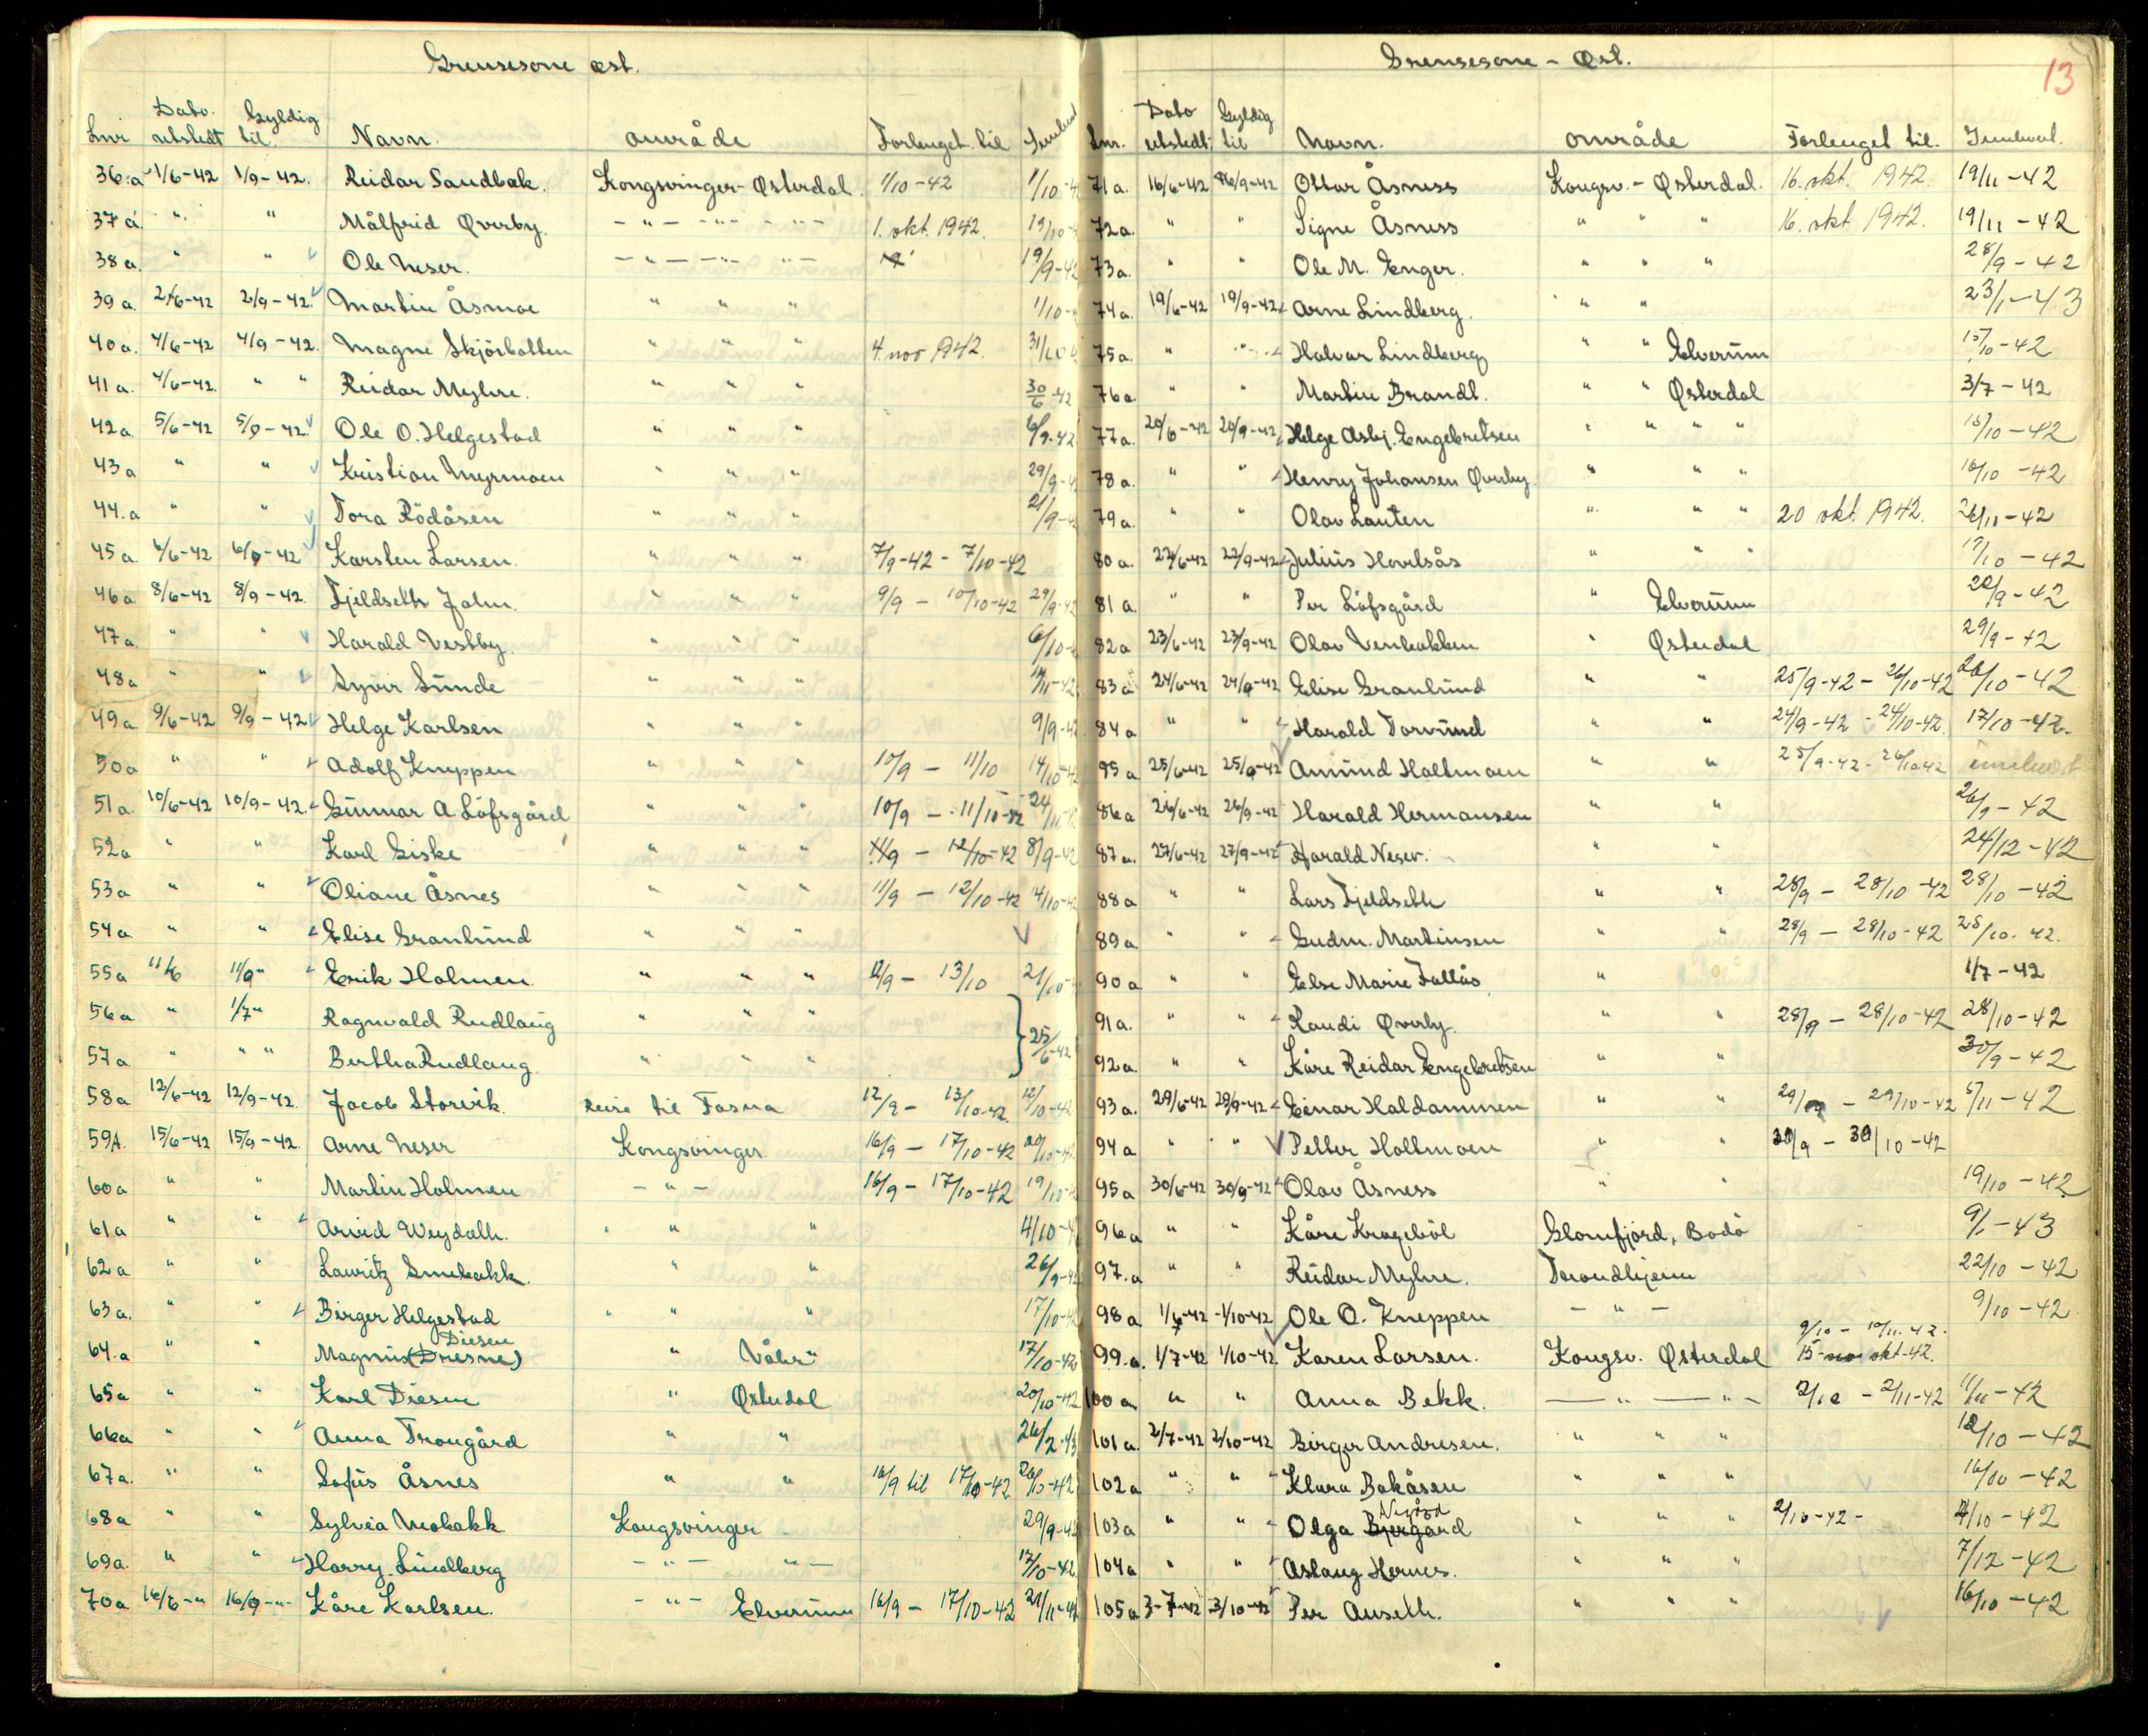 Grensesone øst.
Lnr Dato utstedt Gyldig til. Navn. område Forlenget til
36.a 1/6-42 1/9-42. Reidar Sandbæk. Kongsvinger-Østerdal. 1/10-42
37a " " Målfrid Øverby. -"- -"- -"- 1. okt. 1942.
38a. " " Ole Neser. -"- -"- -"- 19/9-42
39a. 2/6-42 2/9-42. Martin Åsmoe " " "
40a. 4/6-42 4/9-42. Magne Skjörbotten " " " 4. nov 1942.
41a. 4/6-42. " " Reidar Myhre. " " " 30/6-42
42a. 5/6-42 5/9-42 Ole O. Helgestad " " " 6/9-42
43a " " Kristian Myrmoen " " " 29/9-4
44.a " " Tora Rödåsen " " " 21/9-4
45a 6/6-42 6/9-42 Karsten Larsen. " " " 7/9-42 - 7/10-42
46a 8/6-42 8/9-42. Fjeldseth John. " " " 9/9 - 10/10-42 29/9-42
47a " " Harald Vestby. " " " 6/10-4
48a " " Syver Sunde " " "
49a 9/6-42 9/9-42 Helge Karlsen " " " 9/9-42
50a " " Adolf Kneppen " " " 10/9 - 11/10 14/10-42
51a. 10/6-42 10/9-42. Gunnar A Löfsgård " " " 10/9 - 11/10-42 24/11-42
52a " " Karl Giske " " " 11/9 - 12/10-42 8/9-42
53a " " Oliane Åsnes " " " 11/9 - 12/10-42 14/10-42
54a " " Elise Granlund " " "
55a 11/6 11/9" Erik Holmen. " " " 12/9 - 13/10 21/10-
56a " 1/7" Ragnvald Rudlaug " " " 25/6-42
57a. " " " Bertha Rudlaug. " " "
58a 12/6-42 12/9-42. Jacob Storvik. Reise til Fosna 12/9 - 13/10-42. 12/10-42
59A. 15/6-42 15/9-42. Arne Neser Kongsvinger 16/9 - 17/10-42 20/10-42
60a " " Martin Holmen -"- 16/9 - 17/10-42 19/10-4
61a " " Arvid Weydalh. " " " 4/10-4
62a " " Lauritz Smebakk. " " 26/9-42
63a. " " Birger Helgestad " " " 17/10-4
64.a " " Magnus (Dresne) Diesen " Våler" 17/10-42
65a " " Karl Diesen " Østerdal 20/10-42
66a " " Anna Trongård " " 26/2-43
67a. " " Sofus Åsnes " " 16/9 til 17/10-42 26/10-42
68a " " Sylvia Mobakk. Kongsvinger - 29/9-42
69a. " " Harry Lindberg -"- "- 17/10-42
70a 16/6-" 16/9-" Kåre Karlsen. -"- Elverum 16/9 - 17/10-42 21/11-42
Grensesone - Øst.
13
Lnr. Dato utstedt: Gyldig til Navn. område Forlenget til. Innlevert.
71a. 16/6-42 16/9-42 Ottar Åsness Kongsv. - Østerdal. 16. okt. 1942. 19/11-42
72a. " " Signe Åsness " " " 16. okt 1942. 19/11-42
73a. " " Ole M. Enger. " " " 28/9-42
74a. 19/6-42 19/9-42 Arne Lindberg. " " 23/1-43
75a. " " Halvar Lindberg " " Elverum 15/10-42
76a. " " Martin Brandt. " " Østerdal 3/7-42
77a. 20/6-42 20/9-42 Helge Asbj. Engebretsen " " " " 15/10-42
78a. " " Henry Johansen Øverby. " " " 16/10-42
79a " " Olav Lauten " " " 20 okt. 1942. 26/11-42
80a. 22/6-42 22/9-42 Julius Hovelsås " " " 17/10-42
81a. " " Per Löfsgård " Elverum 22/9-42
82a 23/6-42 23/9-42 Olav Venbakken " Østerdal 29/9-42
83a 24/6-42 24/9-42 Elise Granlund " " 25/9-42 - 26/10-42 26/10-42
84a " " Harald Torvund " " 24/9-42 - 24/10-42. 17/10-42.
85a 25/6-42 25/9-42 Amund Holtmoen " " 25/9-42 - 26/10-42 innlevert
86a 26/6-42 26/9-42 Harald Hermansen " " 26/9-42
87a. 27/6-42 27/9-42 Harald Neser. " " 24/12-42
88a " " Lars Fjeldseth " " 28/9 - 28/10-42 28/10-42
89a " " Gudm. Martinsen " " 28/9 - 28/10-42 28/10-42.
90a " " Else Marie Fallås " 1/7-42
91a. " " Randi Øverby. " " 28/9 - 28/10-42 28/10-42
92a. " " Kåre Reidar Engebretsen " " 30/9-42
93a. 29/6-42 29/9-42 Einar Haldammen " " 29/9 - 29/10-42 5/11-42
94a " " Petter Holtmoen " " 30/9 - 30/10-42
95a 30/6-42 30/9-42 Olav Åsness " " 19/10-42
96a " " Kåre Krageböl Glomfjord, Bodö 9/1-43
97.a " " Reidar Myhre. Trondhjem 22/10-42
98a 1/7-42 1/10-42 Ole O. Kneppen -"- 9/10-42
9/10 - 10/11-42.
99.a. 1/7-42 1/10-42. Karen Larsen. Kongsv. Østerdal 15 okt-42.
100a " " Anna Bekk. -"- -"- 2/10 - 2/11-42 11/11-42
101a. 2/7-42 2/10-42 Birger Andresen. " " " 12/10-42
102a " " Klara Bakåsen " " " 16/10-42
103a " " Olga Bjergård Nygård " " " 2/10-42- 4/10-42
104a " " Aslaug Hernes. " " " 7/12-42
105a 3-7-42 3/10-42 Per Auseth. " " " 16/10-42